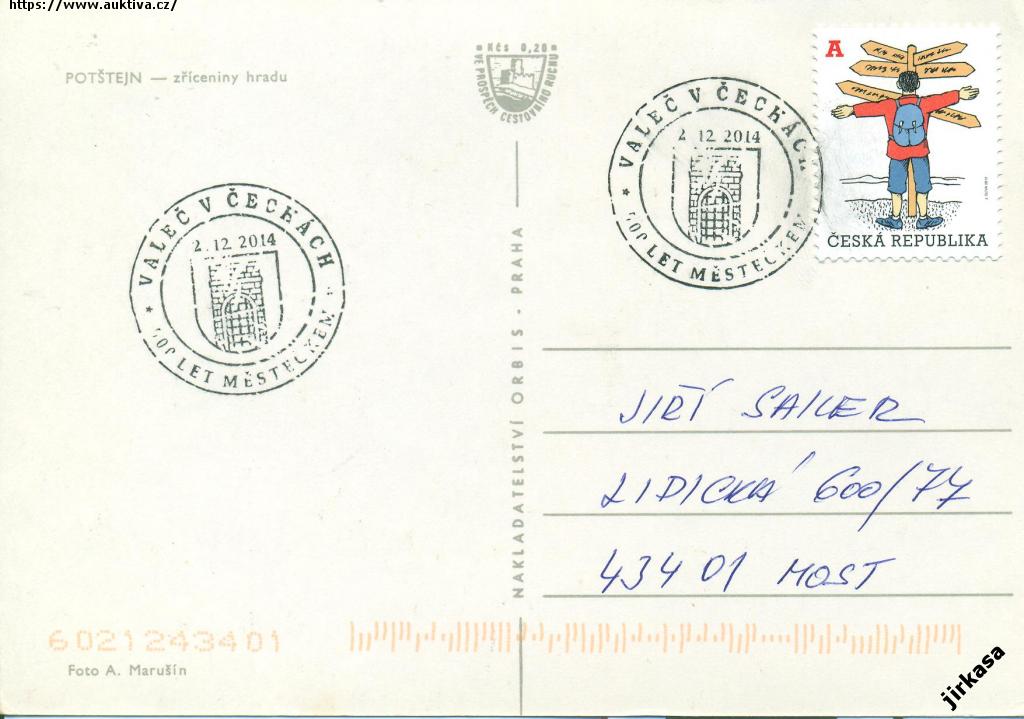 https://www.auktiva.cz/
POTŠTEJN — zříceniny hradu
Kčs 0,20
VE PROSPĚCH CESTOVNÍHO RUCHU
A
ČESKÁ REPUBLIKA
VALEČ V ČECHÁCH
2.12.2014
400 LET MĚSTEČKEM
VALEČ V ČECHÁCH
2.12.2014
400 LET MĚSTEČKEM
NAKLADATELSTVÍ ORBIS - PRAHA
JIŘÍ SAILER
LIDICKÁ 600/77
434 01 MOST
6021243401
Foto A. Marušín
jirkasa